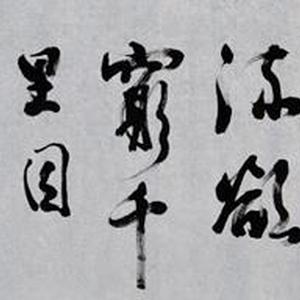 流欲
窮千
里目